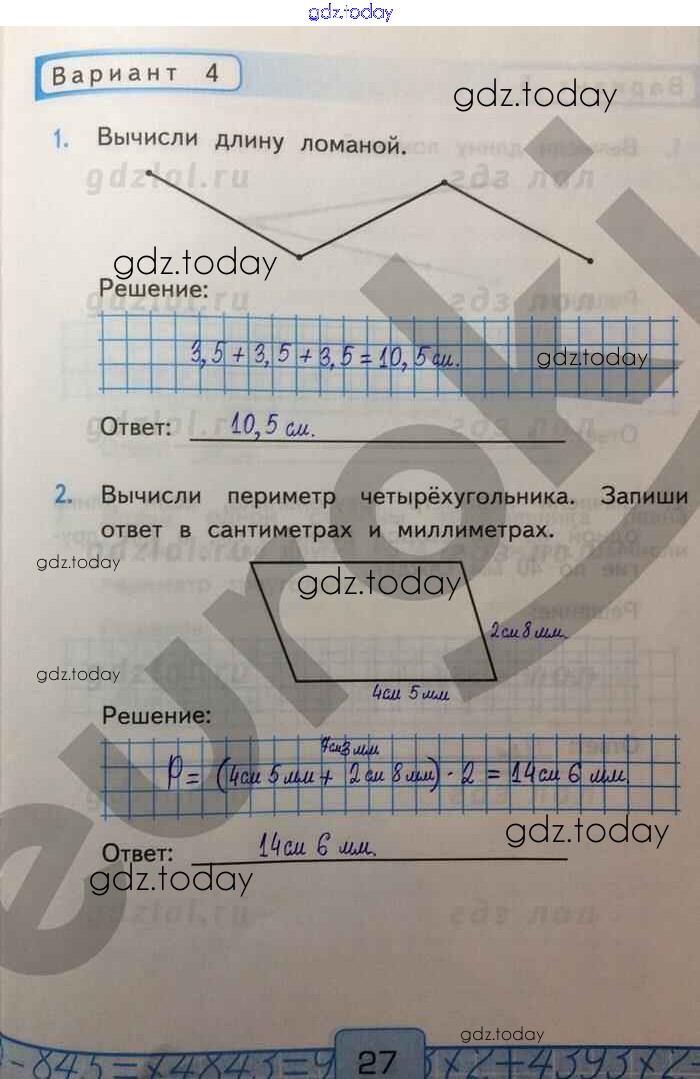 gdz.today
Вариант 4
gdz.today
1. Вычисли длину ломаной.
gdzlol.ru
gdz.today
Решение:
3,5 + 3,5 + 3,5 = 10,5 см.
gdz.today
Ответ: 10,5 см.
2. Вычисли периметр четырёхугольника. Запиши
ответ в сантиметрах и миллиметрах.
gdz.today
gdz.today
2см 8мм.
gdz.today
4см 5мм
Решение:
7см 3мм
P = (4см 5мм + 2см 8мм) · 2 = 14см 6 мм.
gdz.today
Ответ: 14см 6 мм.
gdz.today
euroki
gdz.today
27